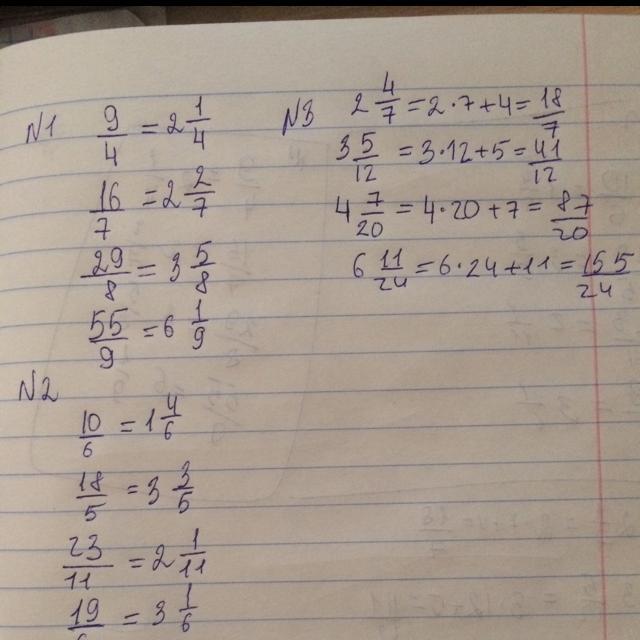 N1
9/4 = 2 1/4
16/7 = 2 2/7
29/8 = 3 5/8
55/9 = 6 1/9
N2
10/6 = 1 4/6
18/5 = 3 3/5
23/11 = 2 1/11
19/6 = 3 1/6
N3
2 4/7 = 2·7+4 = 18/7
3 5/12 = 3·12+5 = 41/12
4 7/20 = 4·20+7 = 87/20
6 11/24 = 6·24+11 = 155/24